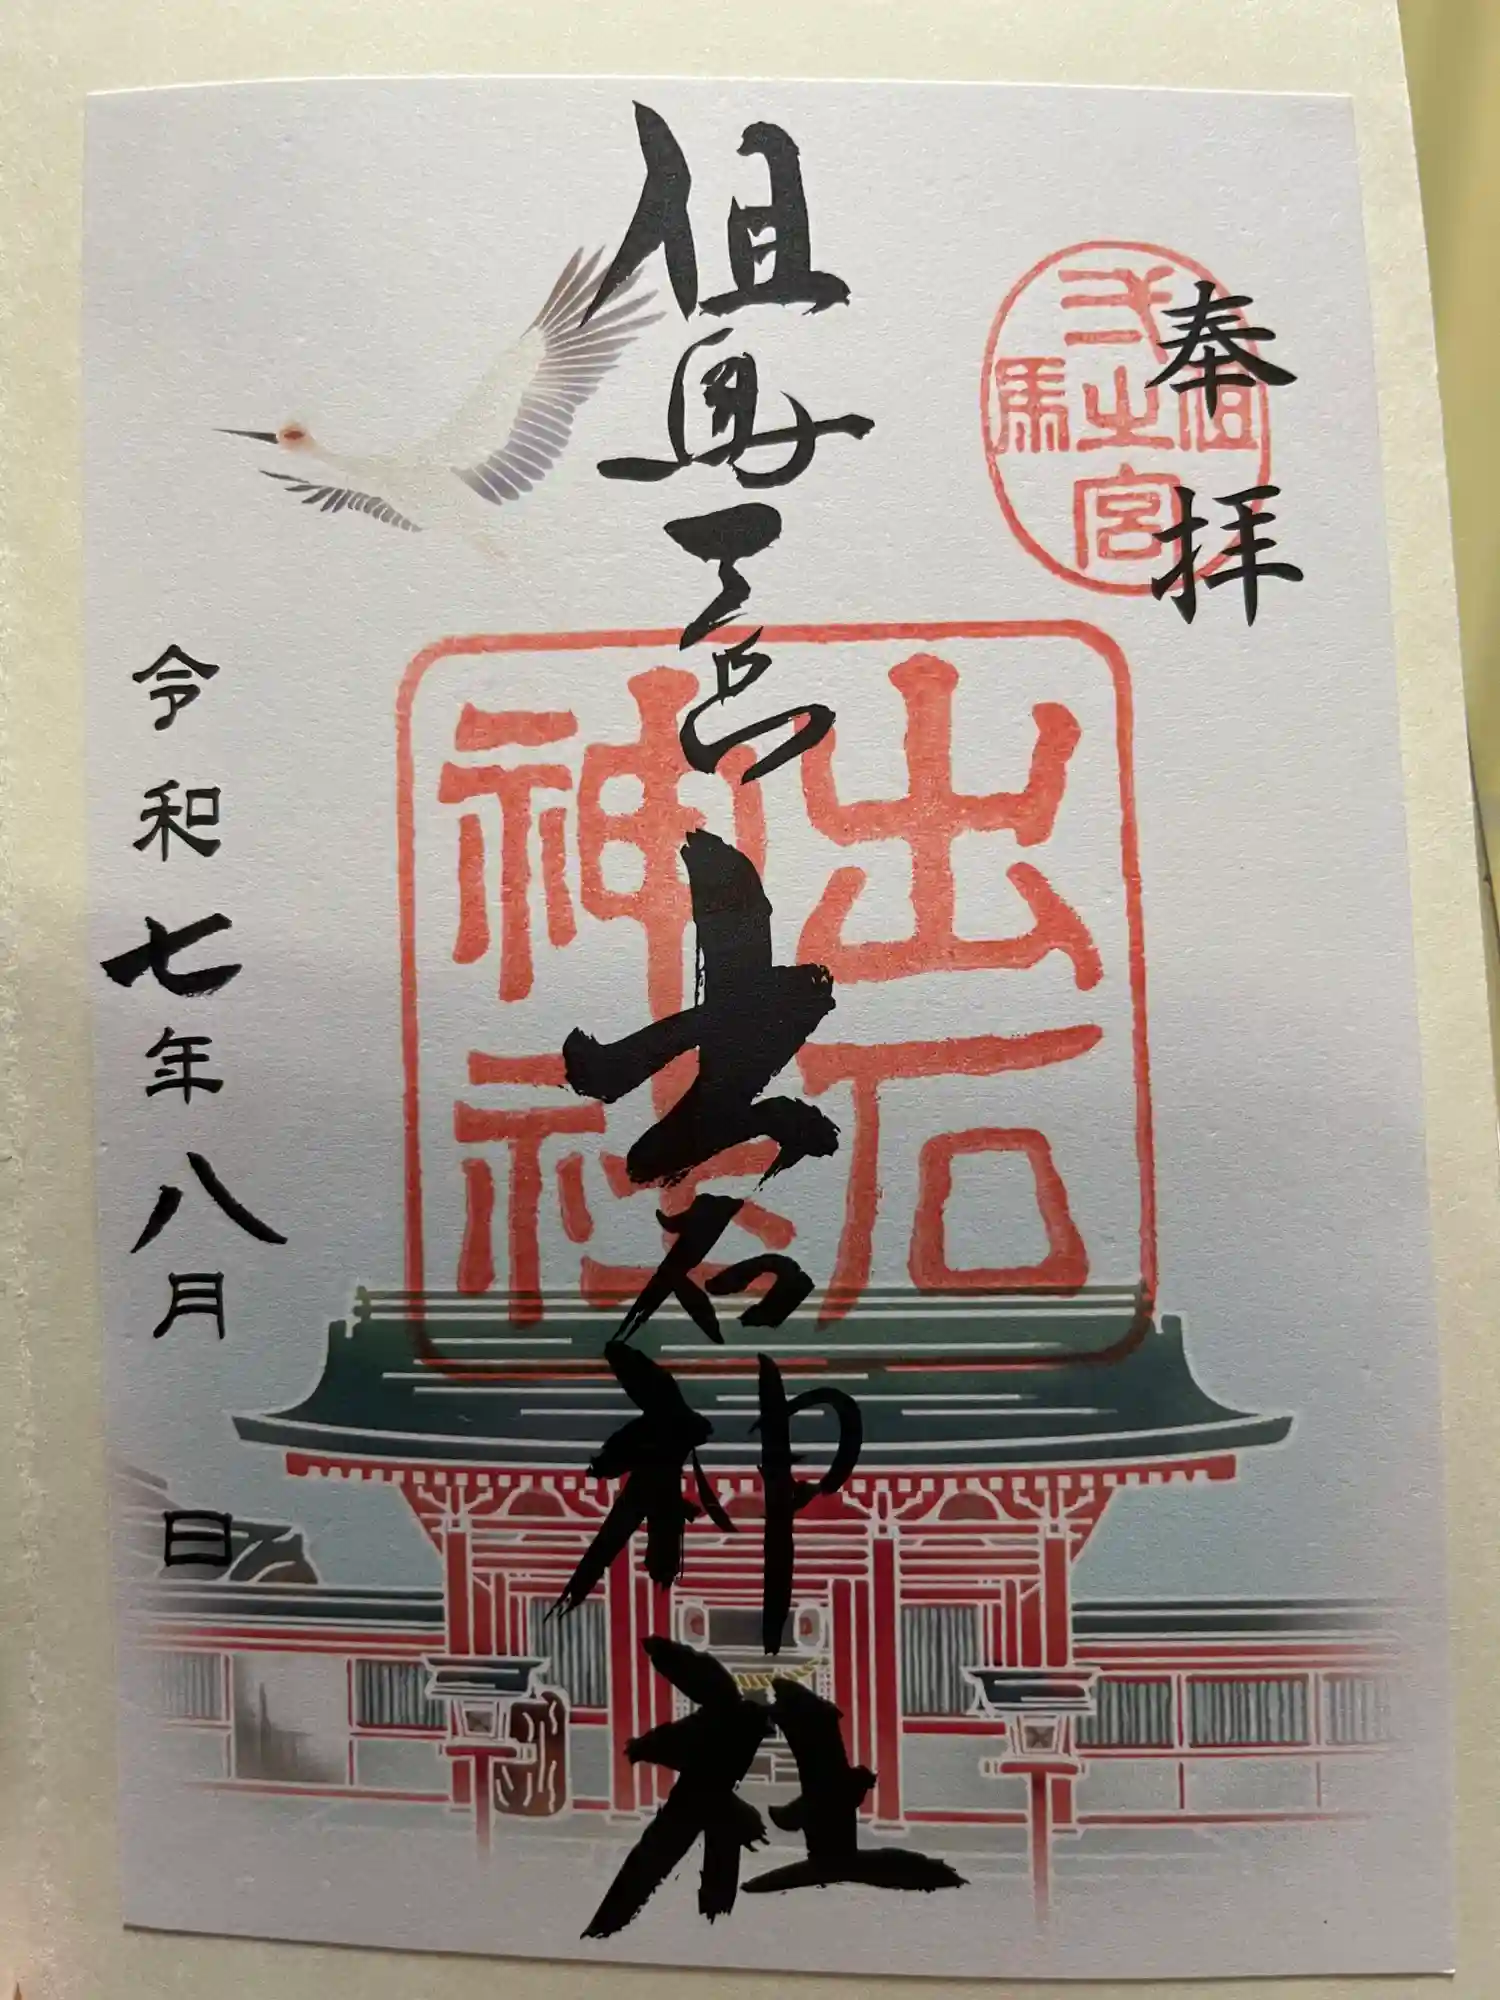 奉拝
但馬弌之宮
但馬一宮 出石神社
出石
神社
令和七年八月 日